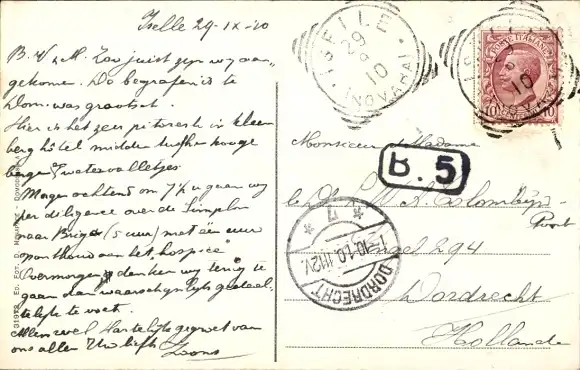 Iselle 29-IX-10
B. V & M. Zoo juist zyn wy aan„
gekomen. De begrafenis te
Dom. was grootsch.
Hier is het zeer pittoresk in klein
berg hôtel midden tusschen hooge
bergen & watervalletjes
Morgen ochtend om 7 1/2 u gaan wy
per diligence over de Simplon
naar Brig (5 uur) met één uur
oponthoud aan het „hospice"
Overmorgen denken wy terug te
gaan dan waarschynlyk gedeel-
telyk te voet.
Allen veel Hartelyk gegroet van
ons allen Uw liefh.
ISELLE
29
9
10
(NOVARA)
POSTE ITALIANE
10
Monsieur & Madame
B.5
Poort
Singel 294
Dordrecht
Hollande
DORDRECHT